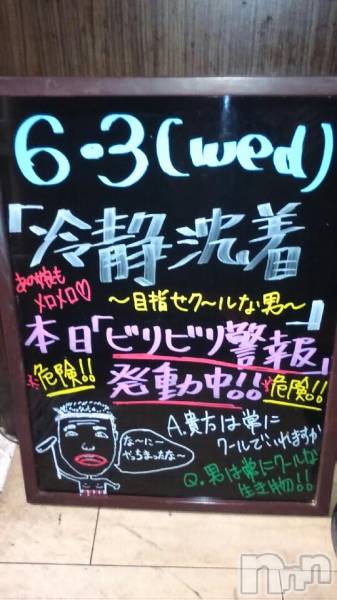 6・3(wed)
「冷静沈着」
あの娘も
メロメロ♡
〜目指せク〜ルな男〜
本日「ビリビリ警報」
発動中!!
※危険!!
※危険!!
A.貴方は常に
クールでいれますか
な〜に〜
やっちまったな〜
Q.男は常にクールな
生き物!!
nnn